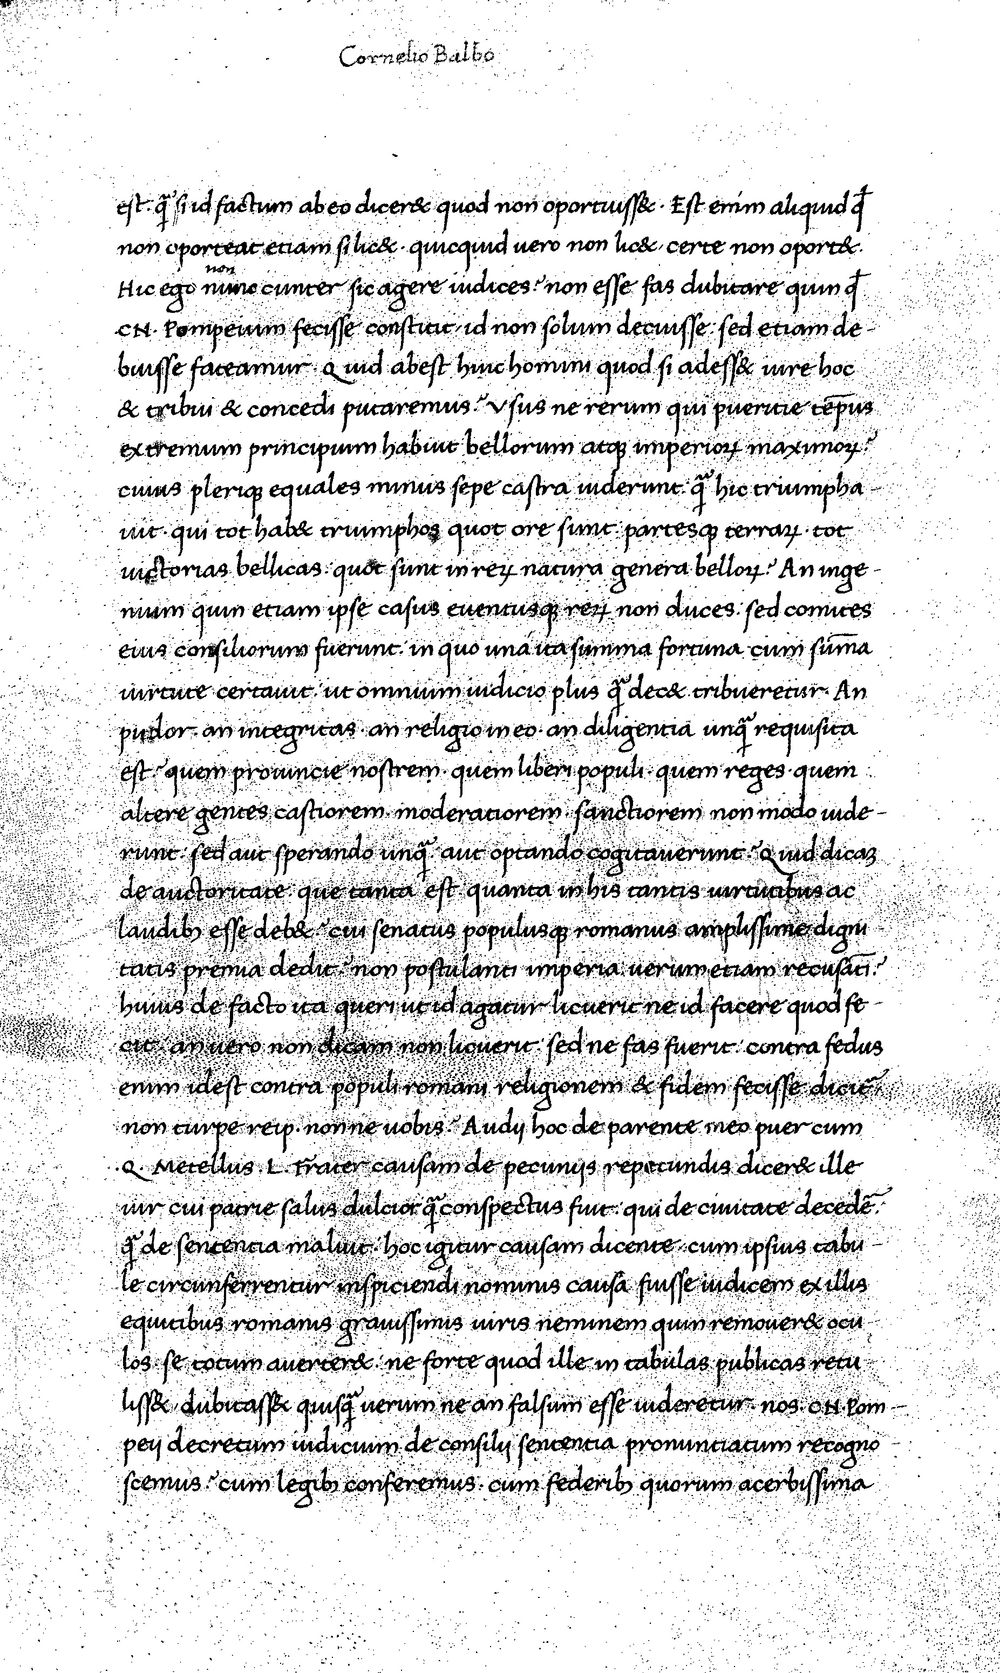 Cornelio Balbo
est · q̄ si id factum ab eo dicer& quod non oportuiss& · Est enim aliquid qđ
non oporteat etiam si lic& · quicquid uero non lic& certe non oport& .
non
Hic ego nunc cunter sic agere iudices? non esse fas dubitare quin qđ
CN · Pompeium fecisse constitit · id non solum decuisse · sed etiam de-
buisse fateamur · Quid abest huic homini quod si adess& iure hoc
& tribui & concedi putaremus? Vsus ne rerum qui pueritie tēpus
extremum principium habuit bellorum atqꝫ imperioꝝ maximoꝝ?
cuius pleriqꝫ equales minus sepe castra uiderunt · q̄ hic triumpha-
uit · qui tot hab& triumphos quot ore sunt partesqꝫ terraꝝ · tot
uictorias bellicas · quot sunt in reꝝ natura genera belloꝝ? An inge-
nium quin etiam ipse casus euentusqꝫ reꝝ non duces · sed comites
eius consiliorum fuerunt · in quo una ita summa fortuna cum sum̄a
uirtute certauit · ut omnium iudicio plus q̄ dec& tribueretur · An
pudor · an integritas · an religio in eo · an diligentia unq̄ requisita
est? quem prouincie nostrem · quem liberi populi · quem reges · quem
altere gentes castiorem · moderatiorem · sanctiorem non modo uide-
runt · sed aut sperando unq̄ · aut optando cogitauerunt? Quid dicaꝫ
de auctoritate · que tanta est quanta in his tantis uirtutibus ac
laudibꝫ esse deb&? cui senatus populusqꝫ romanus amplissime digni
tatis premia dedit? non postulanti imperia uerum etiam recusāti?
huius de facto ita queri ut id agatur licuerit ne id facere quod fe-
cit · an uero non dicam non licuerit · sed ne fas fuerit · contra fedus
enim idest contra populi romani religionem & fidem fecisse diciē?
non turpe reip · non ne uobis? Audij hoc de parente meo puer cum
.Q. Metellus .L. Frater causam de pecunijs repetundis dicer& ille
uir cui patrie salus dulcior q̄ conspectus fuit · qui de ciuitate decedē
q̄ de sententia maluit · hoc igitur causam dicente · cum ipsius tabu-
le circunferrentur inspiciendi nominis causā fuisse iudicem ex illis
equitibus romanis grauissimis uiris neminem quin remouer& ocu-
los · se totum auerter& · ne forte quod ille in tabulas publicas retu
liss& · dubitass& quisq̄ uerum ne an falsum esse uideretur · nos · CN · Pom-
peij decretum iudicium de consilij sententia pronuntiatum recogno-
scemus? cum legibꝫ conferemus · cum federibꝫ quorum acerbissima